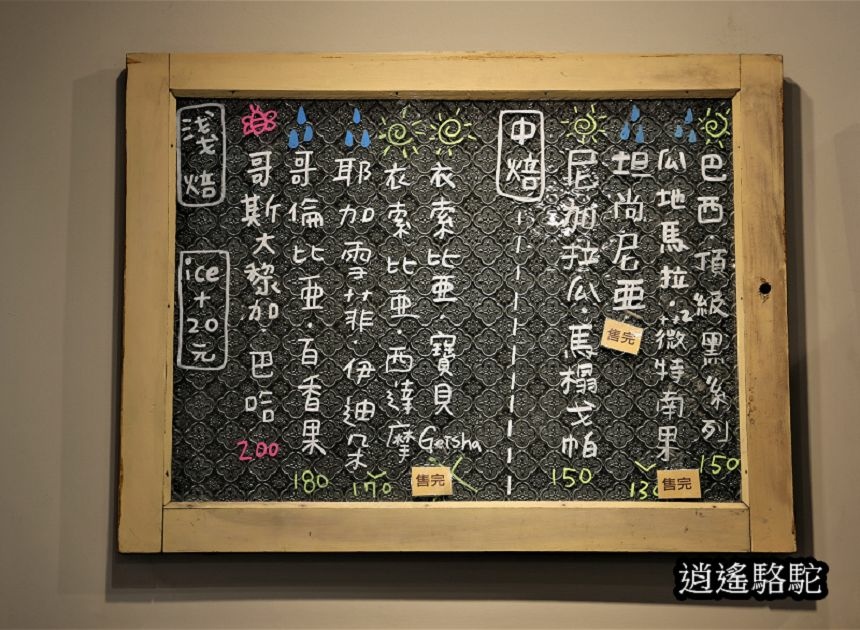 巴西·頂級黑系列
150
瓜地馬拉·微特南果
售完
坦尚尼亞
售完
尼加拉瓜·馬榻戈帕
150
中焙
衣索比亞·寶貝
Geisha
衣索比亞·西達摩
售完
耶加雪菲·伊迪朵
170
哥倫比亞·百香果
180
哥斯大黎加·巴哈
200
淺焙
ice
+
20
元
逍遙駱駝